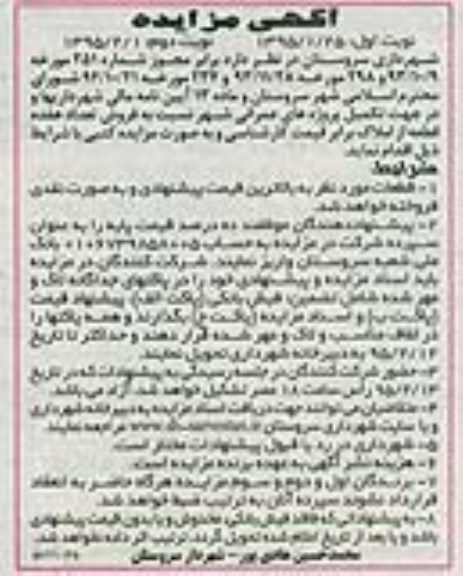 آگهی مزایده
نوبت اول: ۱۳۹۵/۱/۲۵ نوبت دوم: ۱۳۹۵/۲/۱
شهرداری سروستان در نظر دارد برابر مجوز شماره ۲۵۱ مورخه
۹۳/۱۰/۹ و ۲۹۸ مورخه ۹۳/۱۱/۲۸ و ۲۲۶ مورخه ۹۴/۱۰/۲۱ شورای
محترم اسلامی شهر سروستان و ماده ۱۳ آیین نامه مالی شهرداریها و
در جهت تکمیل پروژه های عمرانی شهر نسبت به فروش تعداد هفده
قطعه از املاک برابر قیمت کارشناسی و به صورت مزایده کتبی با شرایط
ذیل اقدام نماید.
شرایط:
۱- قطعات مورد نظر به بالاترین قیمت پیشنهادی و به صورت نقدی
فروخته خواهد شد.
۲- پیشنهاددهندگان موظفند ده درصد قیمت پایه را به عنوان
سپرده شرکت در مزایده به حساب بانک
ملی شعبه سروستان واریز نمایند. شرکت کنندگان در مزایده
باید اسناد مزایده و پیشنهادی خود را در پاکتهای جداگانه لاک و
مهر شده شامل تضمین: فیش بانکی (پاکت الف)، پیشنهاد قیمت
(پاکت ب) و اسناد مزایده (پاکت ج) بگذارند و همه پاکتها را
در لفاف مناسب و لاک و مهر شده قرار دهند و حداکثر تا تاریخ
۹۵/۲/۱۲ به دبیرخانه شهرداری تحویل نمایند.
۳- حضور شرکت کنندگان در جلسه رسیدگی به پیشنهادات که در تاریخ
۹۵/۲/۱۳ رأس ساعت ۱۸ عصر تشکیل خواهد شد، آزاد می باشد.
۴- متقاضیان می توانند جهت دریافت اسناد مزایده به دبیرخانه شهرداری
و یا سایت شهرداری سروستان مراجعه نمایند.
۵- شهرداری در رد یا قبول پیشنهادات مختار است.
۶- هزینه نشر آگهی به عهده برنده مزایده است.
۷- برندگان اول و دوم و سوم مزایده هرگاه حاضر به انعقاد
قرارداد نشوند سپرده آنان به ترتیب ضبط خواهد شد.
۸- به پیشنهاداتی که فاقد فیش بانکی، مخدوش و یا بدون قیمت پیشنهادی
باشد و یا بعد از تاریخ اعلام شده تحویل گردد، ترتیب اثر داده نخواهد شد.
محمدحسین هادی پور - شهردار سروستان